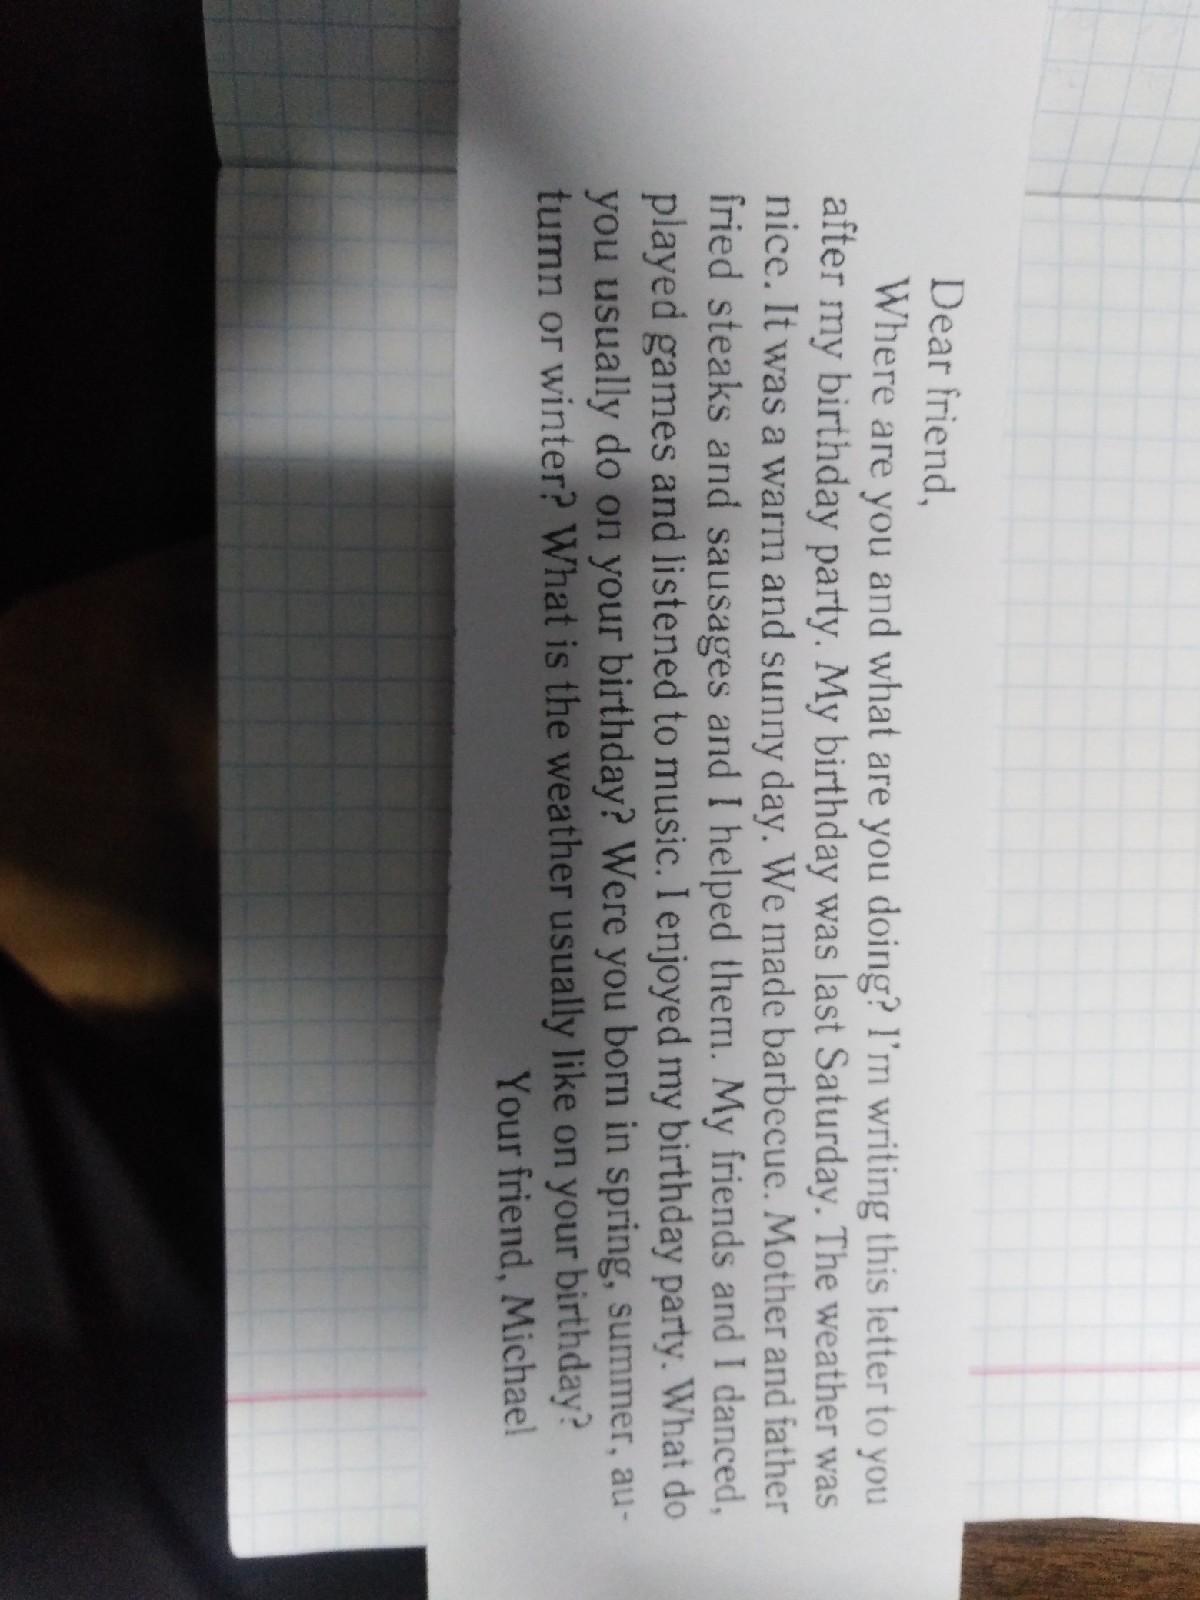 Dear friend,
Where are you and what are you doing? I'm writing this letter to you
after my birthday party. My birthday was last Saturday. The weather was
nice. It was a warm and sunny day. We made barbecue. Mother and father
fried steaks and sausages and I helped them. My friends and I danced,
played games and listened to music. I enjoyed my birthday party. What do
you usually do on your birthday? Were you born in spring, summer, au-
tumn or winter? What is the weather usually like on your birthday?
Your friend, Michael